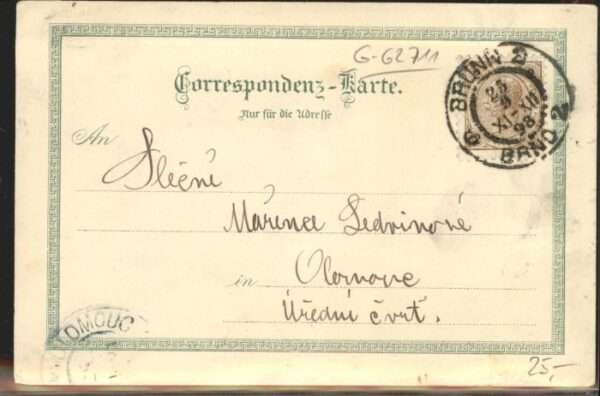 G-62711
Correspondenz-Karte.
Nur für die Adresse
BRÜNN 2
25
8
XI-XII
98
BRNO 2
An
Slečně
Mařence Ledvinové
in
Olomouc
Úřední čvrť.
OLOMOUC
25,-